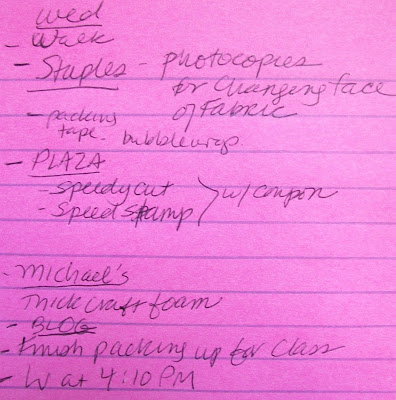 wed
- Walk
- Staples - photocopies
for Changing Face
of Fabric
- packing
tape - bubblewrap
- PLAZA
- Speedycut
- Speed stamp } w/ coupon
- Michael's
Thick craft foam
- BLOG
- finish packing up for Class
- lv at 4:10 PM